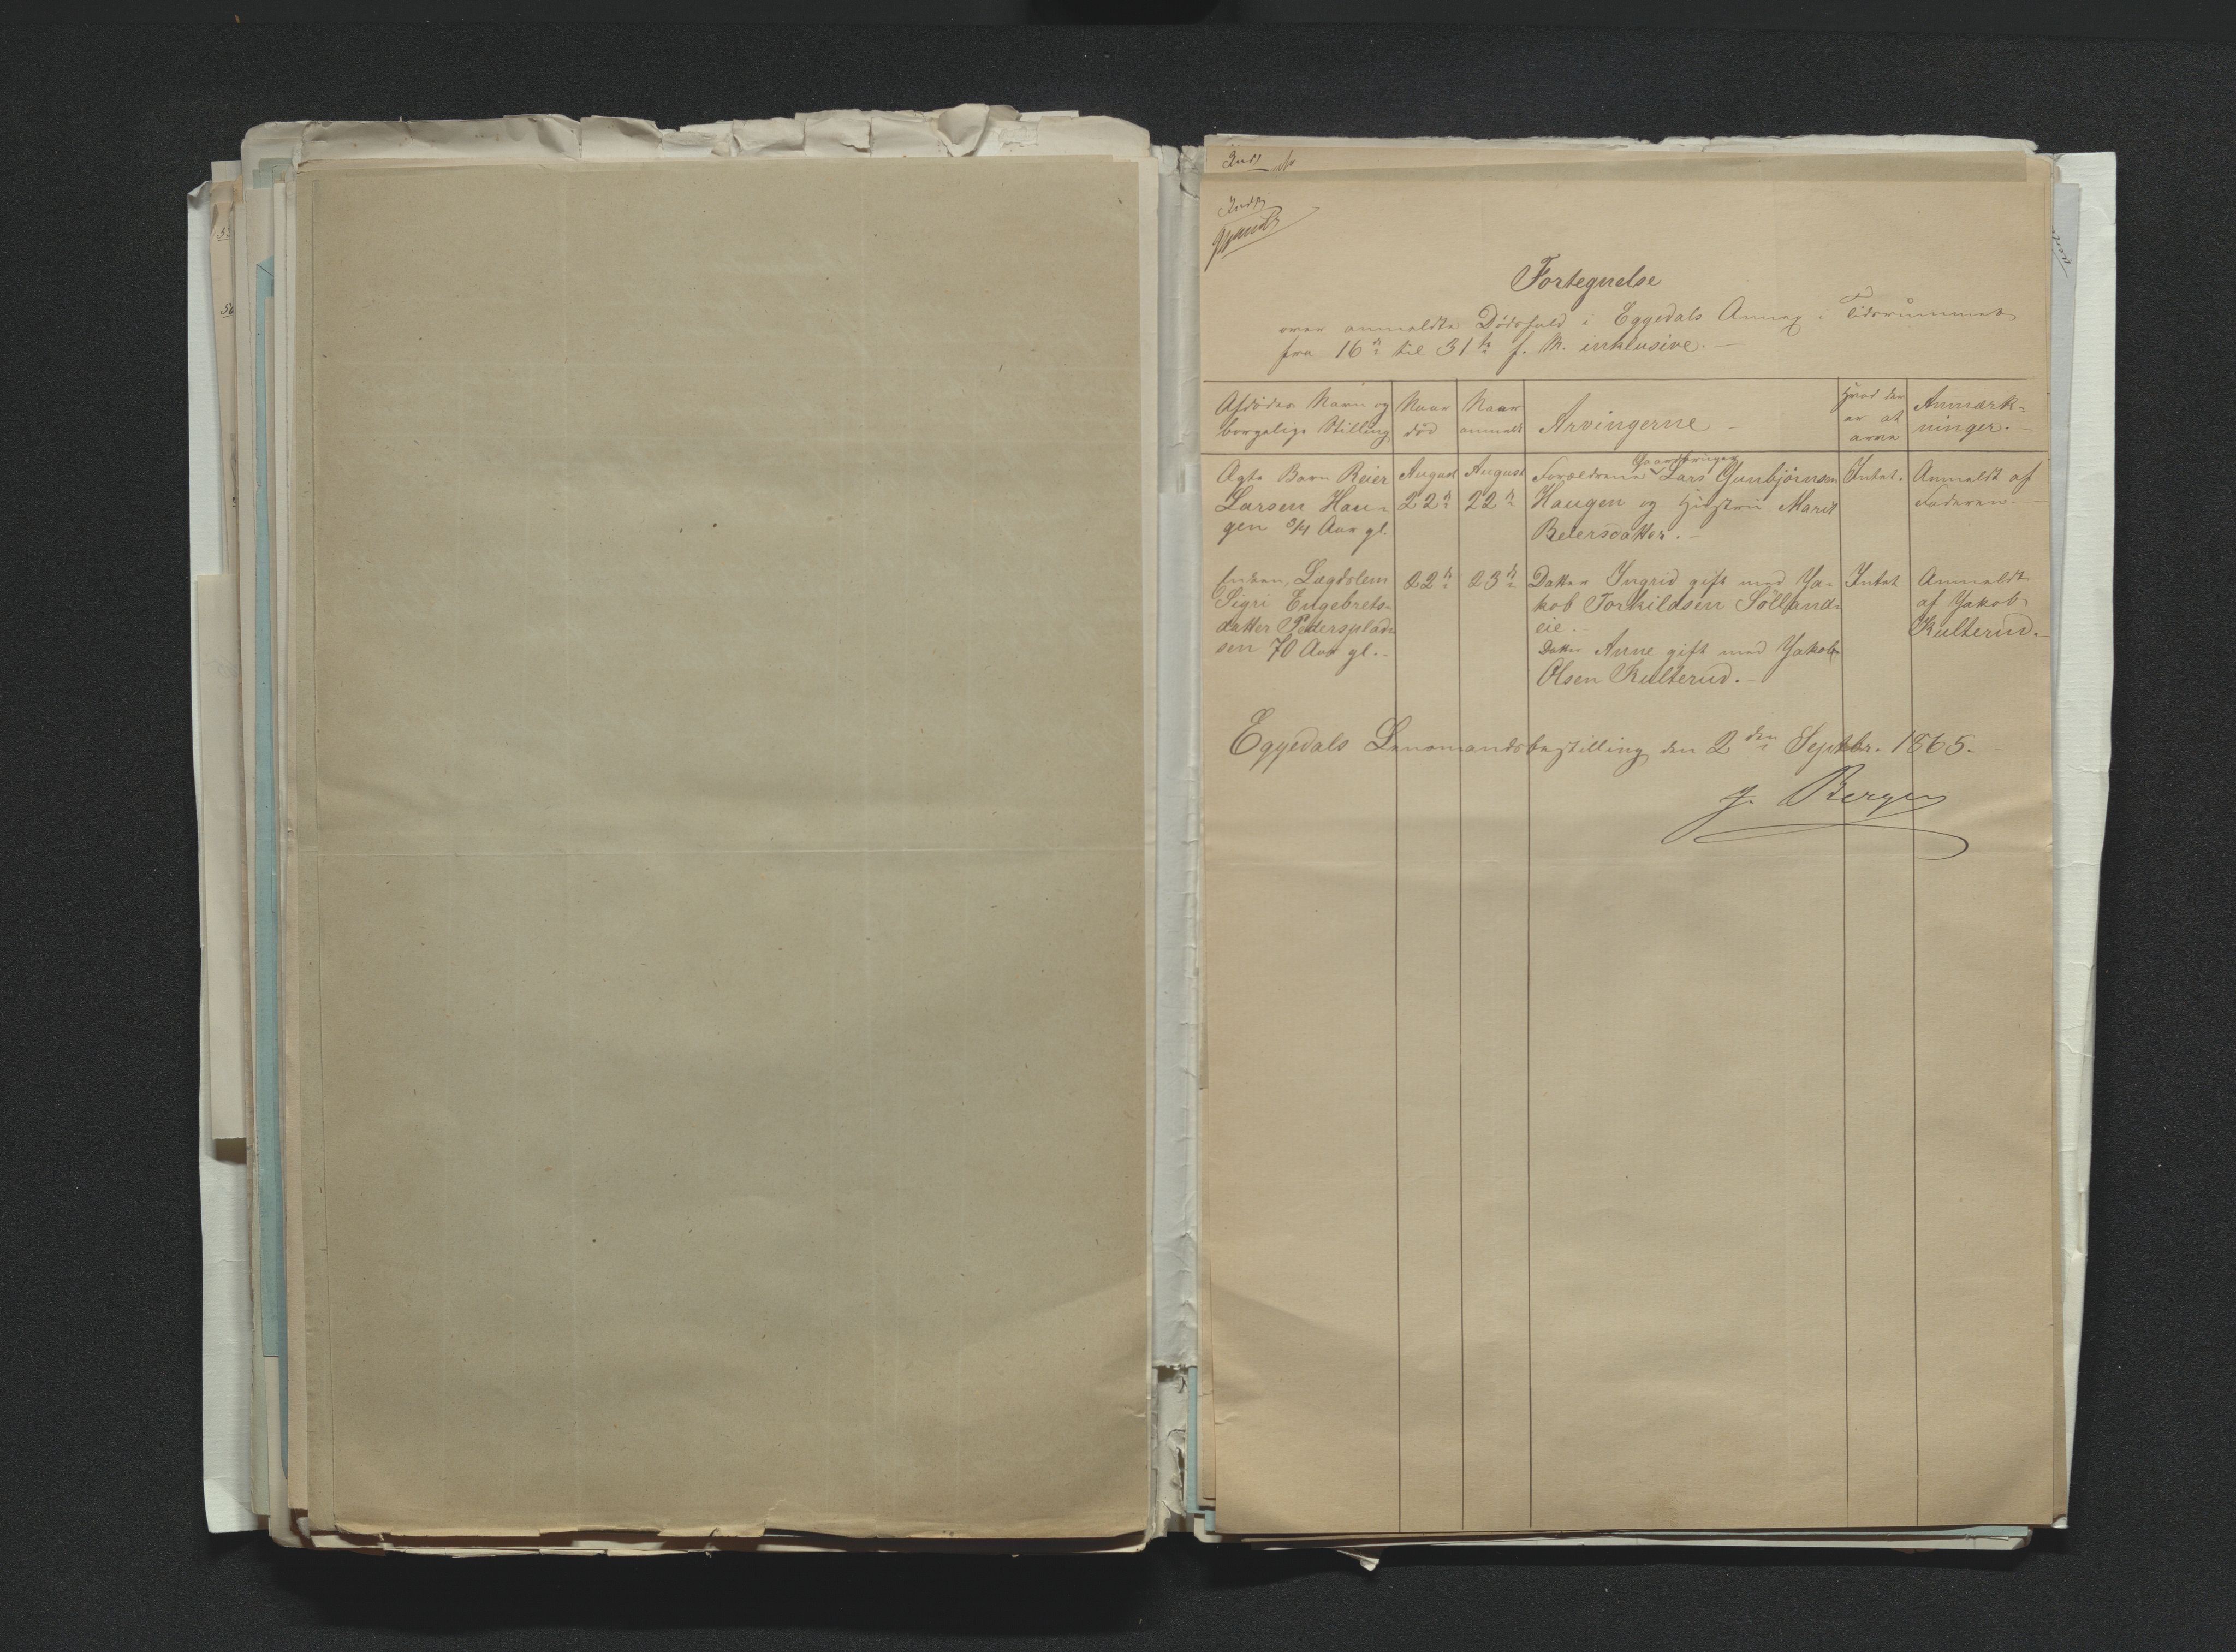 Fortegnelse
over anmeldte Dødsfald i Eggedals Annex i Tidsrummet
fra 16de til 31te f. M. inklusive. –
Afdødes Navn og
borgelige Stilling
Naar
død
Naar
anmeldt
Arvingerne –
Hvad der
er at
arve
Anmærk-
ninger. –
Ægte Barn Reier
Larsen Hau-
gen 3/4 Aar gl.
August
22de
August
22de
Gaardbruger
Forældrene Lars Gunbjörnsen
Haugen og Hustru Marit
Reiersdatter. –
Intet.
Anmeldt af
Faderen –
Enken, Lægdslem
Sigri Engebrets-
datter Pedersplad-
sen 70 Aar gl. –
22de
23de
Datter Ingrid gift med Ja-
kob Torkildsen Sölland-
eie. –
Datter Anne gift med Jakob
Olsen Kulterud. –
Intet
Anmeldt
af Jakob
Kulterud. –
Eggedals Lensmandsbestilling den 2den Septbr. 1865. –
J. Bergen